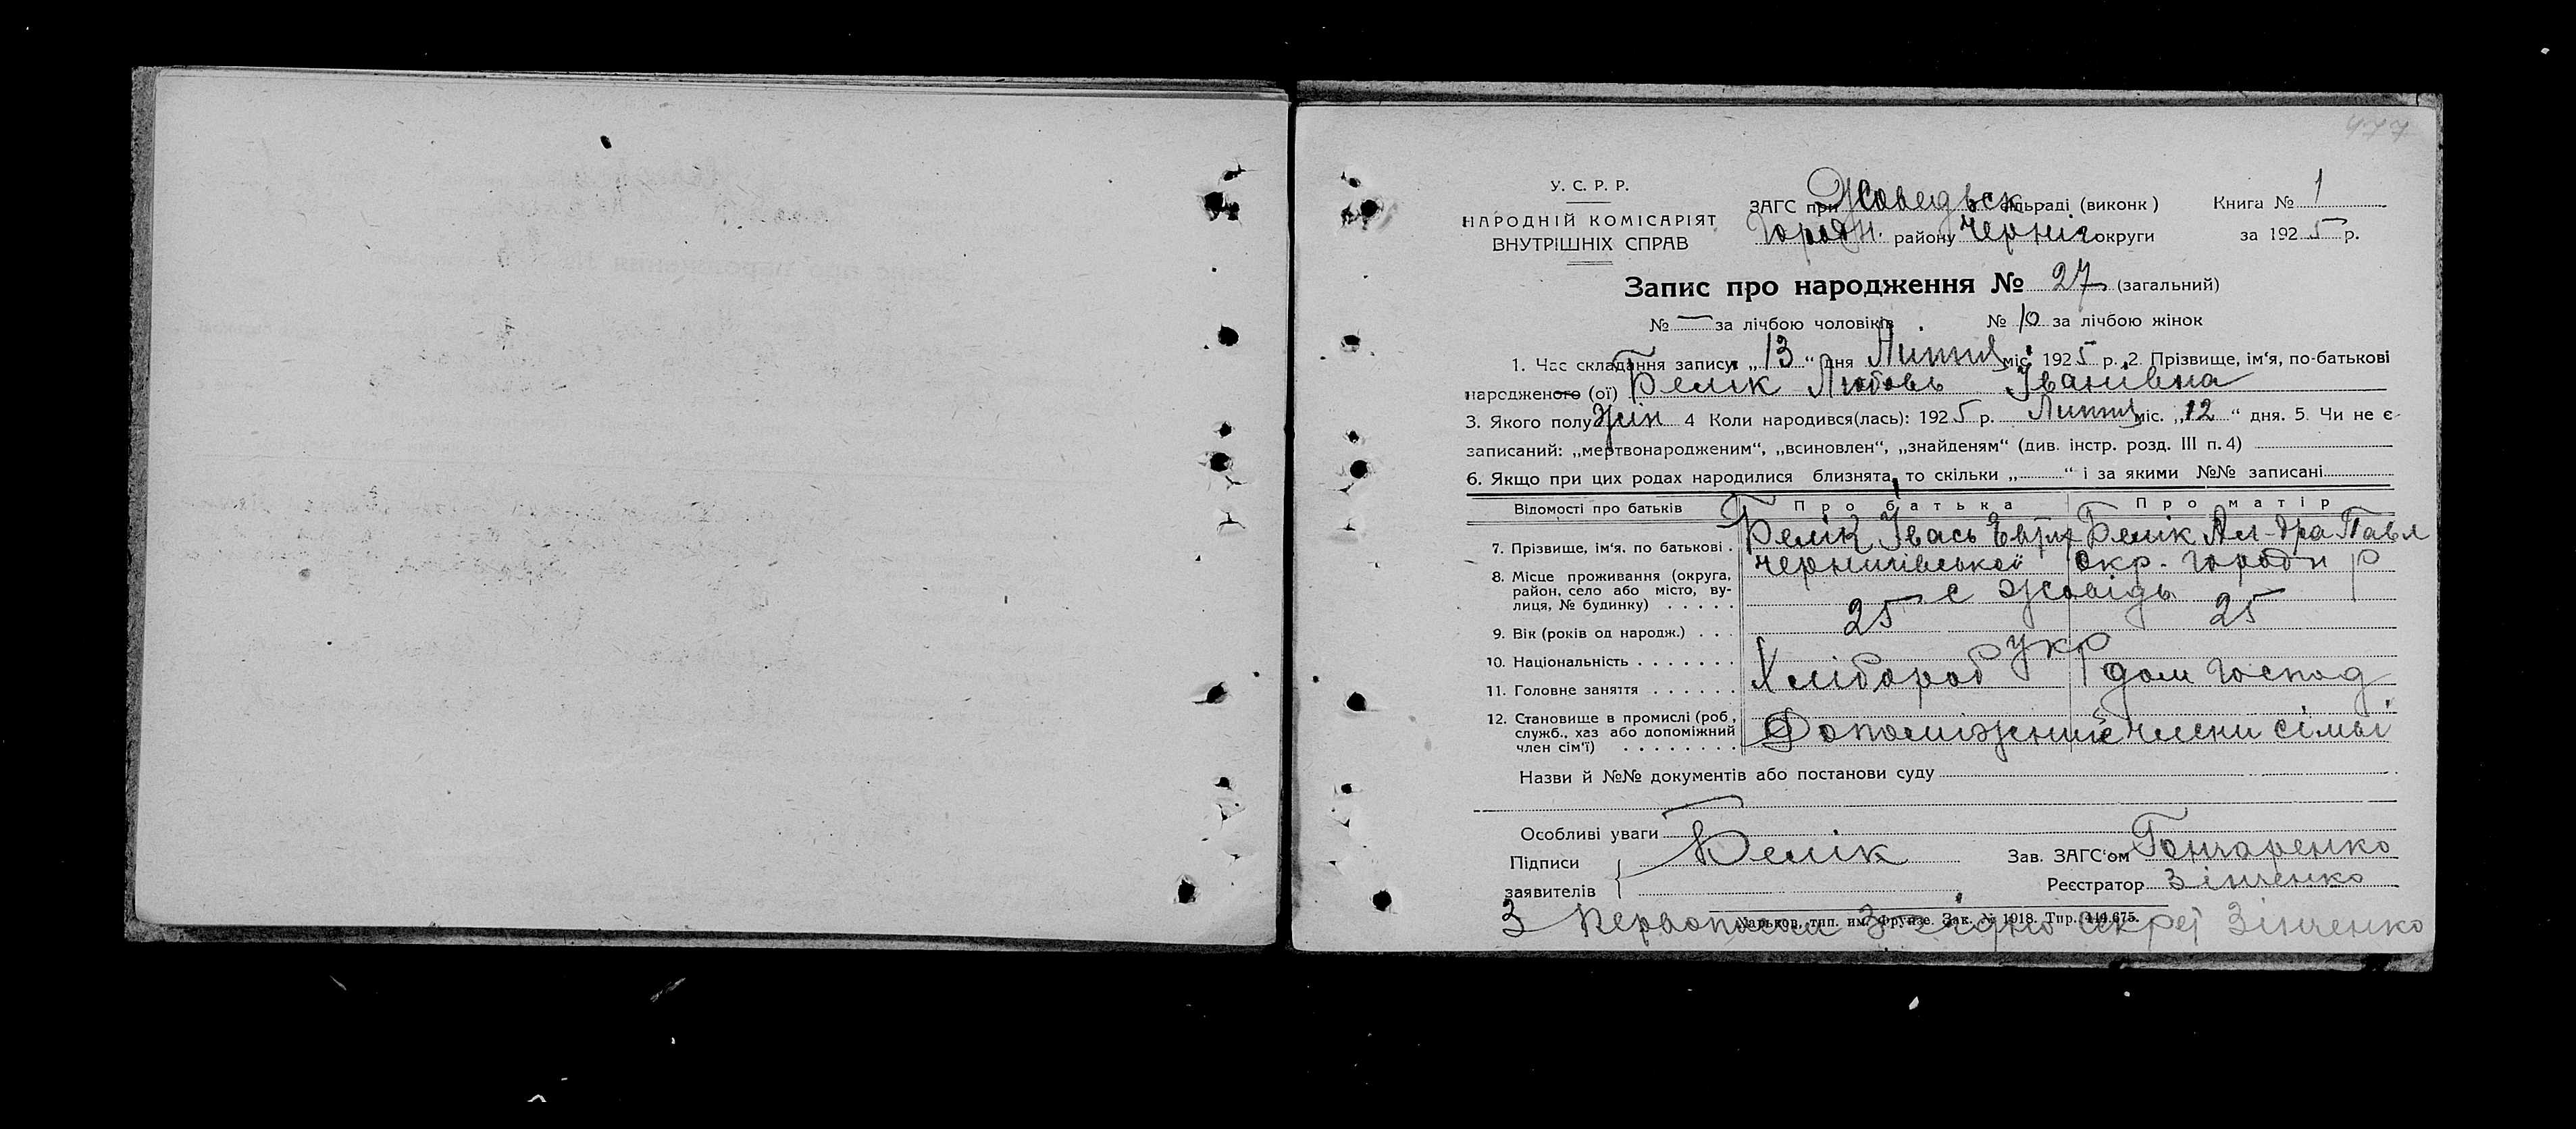 477
У. С. Р. Р.
НАРОДНІЙ КОМІСАРІЯТ
ВНУТРІШНІХ СПРАВ
ЗАГС при Жоведьск сільраді (виконк) Книга № 1
Городн. району Черніг округи за 1925 р.
Запис про народження № 27 (загальний)
№ — за лічбою чоловіків № 10 за лічбою жінок
1. Час складання запису: „13“ дня Липня міс. 1925 р. 2. Прізвище, ім‘я, по-батькові
народженого (ої) Белік Любовь Іванівна
3. Якого полу жін 4 Коли народився(лась): 1925 р. Липня міс. „12“ дня. 5. Чи не є
записаний: „мертвонародженим“, „всиновлен“, „знайденям“ (див. інстр. розд. III п. 4)
6. Якщо при цих родах народилися близнята, то скільки „ “ і за якими №№ записані
Відомості про батьків Про батька Про матір
7. Прізвище, ім‘я, по батькові . Белік Івась Евтх Белік Ал-дра Павл
8. Місце проживання (округа, Чернигівської Окр. Городн р
район, село або місто, ву-
лиця, № будинку) . . . . . с Жовідь
9. Вік (років од народж.) . . . 25 25
10. Національність . . . . . . . Укр
11. Головне заняття . . . . . . Хлібороб дом господ
12. Становище в промислі (роб.,
служб., хаз або допоміжний Допоміжений члени сімьі
член сім‘ї) . . . . . . . .
Назви й №№ документів або постанови суду
Особливі уваги
Підписи Белік Зав. ЗАГС‘ом Гончаренко
заявителів Реєстратор Зінченко
Харьков, тип. им. Фрунзе. Зак. № 1918. Тир. 449.675.
З Первописом Згідно Секрет Зінченко